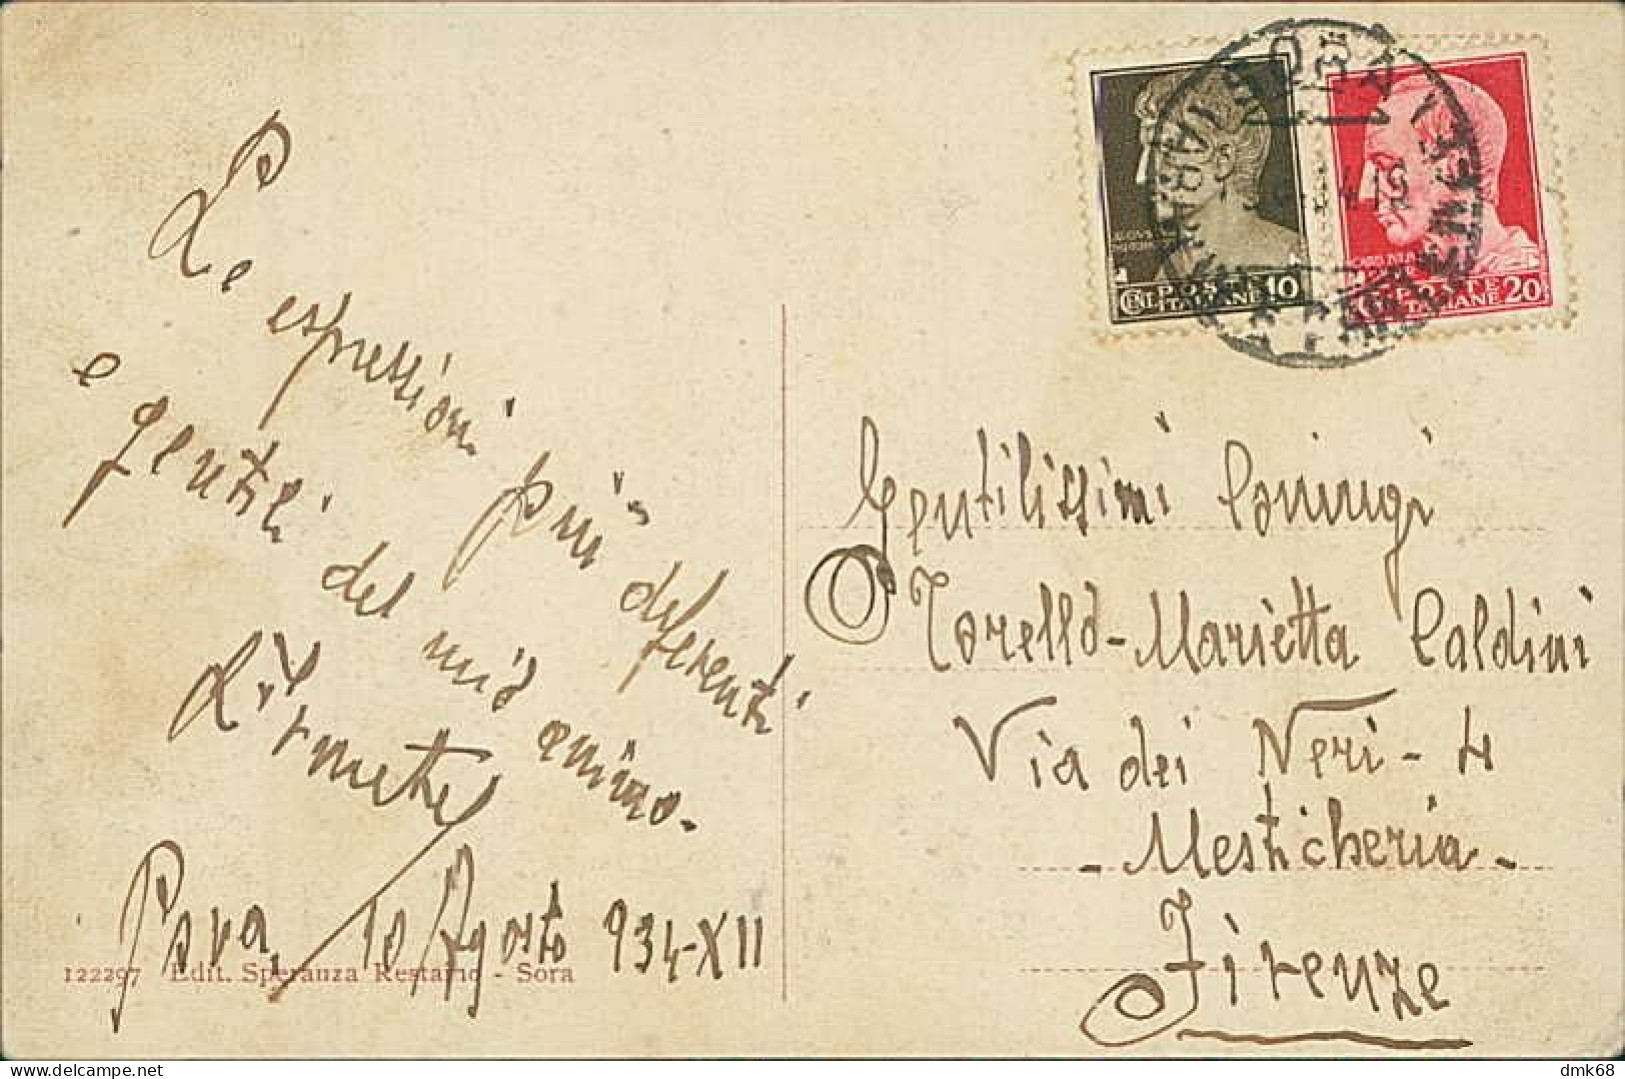 Le espressioni più deferenti
e gentili del mio animo.
Pora, 10 Agosto 934-XII
122297 Edit. Speranza Restaino - Sora
SORA
CENT. 10
POSTE
ITALIANE
POSTE
ITALIANE 20
Gentilissimi Coniugi
Torello-Marietta Caldini
Via dei Neri-4
- Mesticheria -
Firenze
dmk68